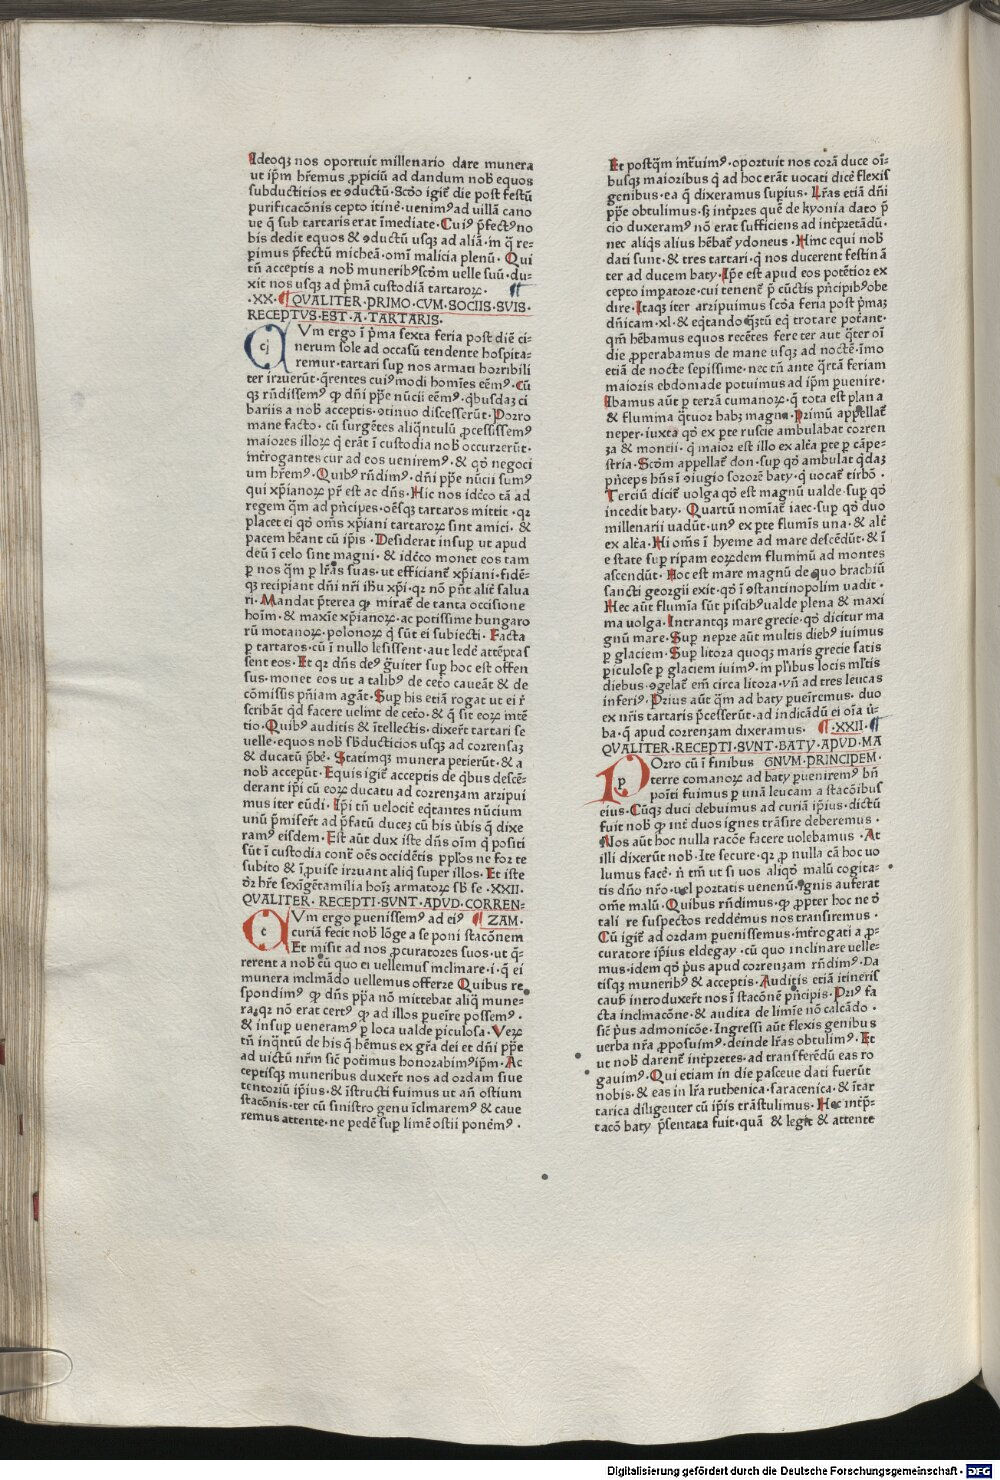 Ideoqꝫ nos oportuit millenario dare munera
ut ip̄m hr̄emus ꝓpiciū ad dandum nob̄ equos
subductitios et ꝯductū. Scd̄o igit̄ die post festū
purificac̄onis cepto itine᷑. uenimꝰ ad uillā cano
ue q̄ sub tartaris erat īmediate. Cuiꝰ p̄fectꝰ no
bis dedit equos & ꝯductū usqꝫ ad aliā. in q̄ re⸗
perimus p̄fectū micheā. om̄i malicia plenū. Qui
tn̄ acceptis a nob̄ muneribꝰ scd̄m uelle suū. du⸗
xit nos usqꝫ ad p̄mā custodiā tartaroꝝ. ¶
.XX. ¶ QVALITER .PRIMO .CVM .SOCIIS .SVIS.
RECEPTVS .EST .A .TARTARIS.
CVm ergo ī p̄ma sexta feria post diē ci⸗
nerum sole ad occasū tendente hospita⸗
remur. tartari sup̄ nos armati horribili
ter irruerūt. q̄rentes cuiꝰmodi homīes eēmꝰ. Cū
qꝫ rn̄dissemꝰ ꝙ dn̄i pp̄e nūcii eēmꝰ. q̄busdaꝫ ci
bariis a nob̄ acceptis. ꝯtinuo discesserūt. Porro
mane facto. cū surgētes aliq̄ntulū ꝓcessissemꝰ
maiores illoꝝ q̄ erāt ī custodia nob̄ occurrerūt.
int̄rogantes cur ad eos ueniremꝰ. & qd̄ negoci
um hr̄emꝰ. Quibꝰ rn̄dimꝰ. dn̄i pp̄e nūcii sumꝰ
qui xp̄ianoꝝ pr̄ est ac dn̄s. Hic nos idēco tā ad
regem q̄m ad p̄ncipes. oēsqꝫ tartaros mittit. qꝛ
placet ei qd̄ om̄s xp̄iani tartaroꝝ sint amici. &
pacem hēant cū ip̄is. Desiderat insup̄ ut apud
deū ī celo sint magni. & idēco monet eos tam
ꝑ nos q̄m ꝑ lr̄as suas. ut efficiant̄ xp̄iani. fidē⸗
qꝫ recipiant dn̄i nr̄i ihū xp̄i. qꝛ nō pn̄t alit̄ salua
ri. Mandat p̄terea ꝙ mirat̄ de tanta occisione
hoīm. & maxīe xp̄ianoꝝ. ac potissime hungaro
rū motanoꝝ. polonoꝝ q̄ sūt ei subiecti. Facta
ꝑ tartaros. cū ī nullo lesissent. aut ledē attēptas
sent eos. Et qꝛ dn̄s deꝰ ḡuiter sup̄ hoc est offen
sus. monet eos ut a talibꝰ de cet̄o caueāt & de
cōmissis pn̄iam agāt. Sup̄ his etiā rogat ut ei r̄
scribāt qd̄ facere uelint de cet̄o. & q̄ sit eoꝝ intē
tio. Quibꝰ auditis & ītellectis. dixer̄t tartari se
uelle. equos nob̄ sb̄ducticios usqꝫ ad correnſaꝫ
& ducatū p̄be᷑. Statimqꝫ munera petierūt. & a
nob̄ accepūt. Equis igit̄ acceptis de q̄bus descē⸗
derant ip̄i cū eoꝝ ducatu ad correnzam arripui
mus iter eūdi. Ip̄i tn̄ velocit̄ eq̄tantes nūcium
unū p̄miser̄t ad p̄fatū duceꝫ cū his u̇bis q̄ dixe
ramꝰ eisdem. Est aūt dux iste dn̄s oīm q̄ positi
sūt ī custodia cont̄ oēs occidētis pp̄los ne for te
subito & ī,puise irruant aliq̄ super illos. Et iste
dr̄ hr̄e sexīgētamilia hoīs armatoꝝ sb̄ se .XXII.
QVALITER . RECEPTI .SVNT .APVD .CORREN⸗
CVm ergo puenissemꝰ ad eiꝰ ¶ ZAM.
curiā fecit nob̄ lōge a se poni stac̄onem
Et misit ad nos ꝓcuratores suos. ut q̄⸗
rerent a nob̄ cū quo ei uellemus inclinare. i. q̄ ei
munera inclinādo uellemus offerre Quibus re
spondimꝰ ꝙ dn̄s pp̄a nō mittebat aliq̄ mune⸗
ra. qꝛ nō erat certꝰ ꝙ ad illos pueīre possemꝰ.
& insup̄ ueneramꝰ ꝑ loca ualde piculosa. Veꝝ
tn̄ inq̄ntū de his q̄ hēmus ex gr̄a dei et dn̄i pp̄e
ad uictū nr̄m sic̄ pot̄imus honorabimꝰ ip̄m. Ac
ceptisqꝫ muneribus duxer̄t nos ad ordam siue
tentoriū ip̄ius. & īstructi fuimus ut an̄ ostium
stac̄onis. ter cū sinistro genu īclinaremꝰ & caue
remus attente. ne pedē sup̄ limē ostii ponemꝰ.
Et postq̄m int̄uimꝰ. oportuit nos corā duce oi̅⸗
busqꝫ maioribus q̄ ad hoc erāt uocati dice᷑ flexis
genibus. ea q̄ dixeramus sup̄ius. Lr̄as etiā dn̄i
pp̄e obtulimus. sꝫ int̄pres quē de kyonia dato p̄
cio duxeramꝰ nō erat sufficiens ad int̄pretādū.
nec aliq̄s alius hēbat̄ ydoneus. Hinc equi nob̄
dati sunt. & tres tartari. q̄ nos ducerent festin ā
ter ad ducem baty. Ip̄e est apud eos potētior ex
cepto impatore. cui tenent̄ p̄ cūctis pn̄cipibꝰ obe
dire. Itaqꝫ iter arripuimus scd̄a feria post p̄maꝫ
dn̄icam. xl. & eq̄tando q̄ꝫtū eq̄ trotare potant.
qm̄ hēbamus equos recētes fere ter aut q̄ter oī
die ꝓperabamus de mane usqꝫ ad noctē. īmo
etiā de nocte sepissime. nec tn̄ ante q̄rtā feriam
maioris ebdomade potuimus ad ip̄m puenire.
Ibamus aūt ꝑ terrā cumanoꝝ. q̄ tota est plan a
& flumina q̄tuor habꝫ magna. Primū appellat̄
neper. iuxta qd̄ ex pte ruscie ambulabat corren
za & montii. q̄ maior est illo ex alt̄a pte ꝑ cāpe⸗
stria. Scd̄m appellat̄ don. sup̄ qd̄ ambulat q̄daꝫ
p̄nceps hn̄s ī ꝯiugio sororē baty. q̄ uocat̄ tirbō.
Terciū dicit̄ uolga qd̄ est magnū ualde. sup̄ qd̄
incedit baty. Quartū nomiāt̄ iaec. sup̄ qd̄ duo
millenarii uadūt. unꝰ ex pte flumīs una. & alt̄
ex alt̄a. Hi om̄s ī hyeme ad mare descēdūt. & ī
e state sup̄ ripam eoꝝdem fluminū ad montes
ascendūt. Hoc est mare magnū de quo brachiū
sancti georgii exit. qd̄ ī ꝯstantinopolim uadit.
Hec aūt flumīa sūt piscibꝰ ualde plena & maxi
ma uolga. Intrantqꝫ mare grecie. qd̄ dicitur ma
gnū mare. Sup̄ nepre aūt multis diebꝰ iuimus
ꝑ glaciem. Sup̄ litora quoqꝫ maris grecie satis
piculose ꝑ glaciem iuimꝰ. in pl̄ibus locis ml̄tis
diebus. ꝯgelat̄ em̄ circa litora. vn̄ ad tres leucas
inferiꝰ. Prius aūt q̄m ad baty pueīremus. duo
ex nr̄is tartaris p̄cesserūt. ad indicādū ei oīa u̇⸗
ba. q̄ apud correnzam dixeramus. ¶ .XXII. ¶
QVALITER .RECEPTI .SVNT .BATV .APVD .MA
GNVM .PRINCIPEM.
POrro cū ī finibus
terre comanoꝝ ad baty pueniremꝰ bn̄
poīti fuimus ꝑ unā leucam a stac̄oībus
eius. Cūqꝫ duci debuimus ad curiā ip̄ius. dictū
fuit nob̄ ꝙ int̄ duos ignes trāsire deberemus.
Nos aūt hoc nulla rac̄oe facere uolebamus. At
illi dixerūt nob̄. Ite secure. qꝛ ꝓ nulla cā hoc uo
lumus face᷑. n̄ tm̄ ut si uos aliqd̄ malū cogita⸗
tis dn̄o nr̄o. uel portatis uenenū. ignis auferat
om̄e malū. Quibus rn̄dimus. ꝙ ꝓpter hoc ne d̄
tali re suspectos reddēmus nos transiremus.
Cū igit̄ ad ordam puenissemus. int̄rogati a ꝓ⸗
curatore ip̄ius eldegay. cū quo inclinare uelle⸗
mus. idem qd̄ p̄us apud correnzam rn̄dimꝰ. Da
tisqꝫ muneribꝰ & acceptis. Auditis etiā itineris
caus̄ introduxer̄t nos ī stac̄onē p̄ncipis. Priꝰ fa
cta inclinac̄one. & audita de limīe nō calcādo.
sic̄ p̄us admonic̄oe. Ingressi aūt flexis genibus
uerba nr̄a ꝓposuimꝰ. deinde lr̄as obtulimꝰ. Et
ut nob̄ darent̄ int̄pretes. ad transferēdū eas ro
gauimꝰ. Qui etiam in die pasceue dati fuerūt
nobis. & eas in lr̄a ruthenica. saracenica. & ītar
tarica diligenter cū ip̄is trāstulimus. Hec int̄p̄⸗
tac̄o baty p̄sentata fuit. quā & legit & attente
Digitalisierung gefördert durch die Deutsche Forschungsgemeinschaft - DFG